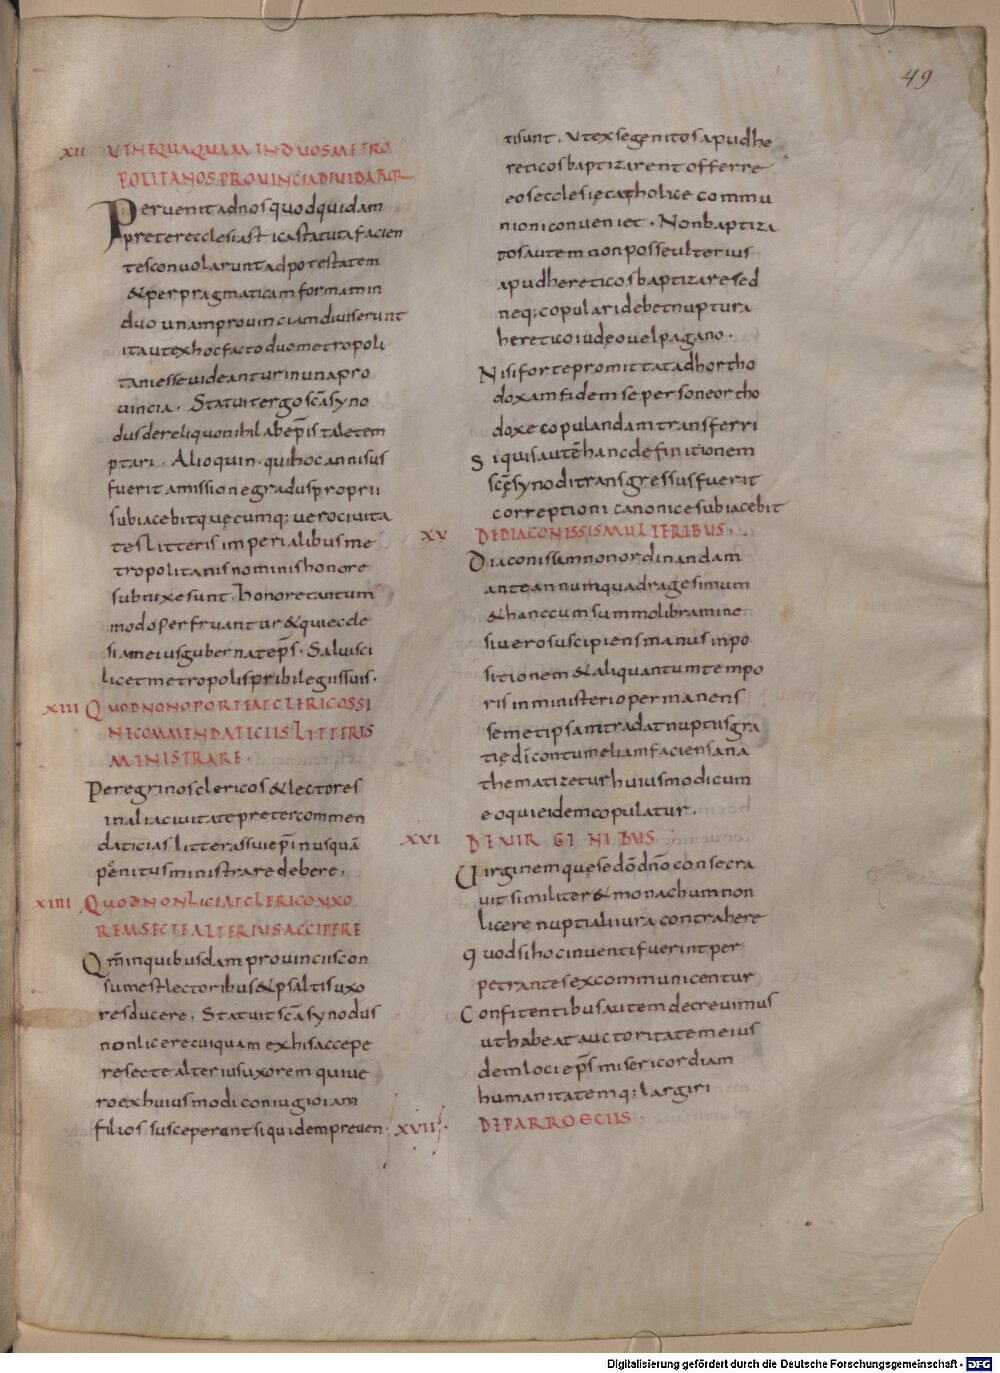 49
XII UT NEQUAQUAM IN DUOS METRO
POLITANOS PROUINCIA DIUIDATUR
Peruenit ad nos quod quidam
preter ecclesiastica statuta facien
tes conuolarunt ad potestatem
& per pragmaticam formam in
duo unam prouinciam diuiserunt
ita ut ex hoc facto duo metropoli
tani esse uideantur in una pro
uincia. Statuit ergo scā syno
dus de reliquo nihil ab ep̄is tale tem
ptari. Alioquin qui hoc annisus
fuerit amissione gradus proprii
subiacebit quecumq; uero ciuita
tes litteris imperialibus me
tropolitani nominis honore
subnixe sunt. honore tantum
modo perfruantur & qui eccle
siam eius gubernat ep̄s. Salui sci
licet metropolis pribilegiis suis.
XIII QUOD NON OPORTEAT CLERICOS SI
NE COMMENDATICIIS LITTERIS
MINISTRARE.
Peregrinos clericos & lectores
in alia ciuitate preter commen
daticias litteras sui ep̄i nusquā
penitus ministrare debere.
XIIII QUOD NON LICEAT CLERICO UXO
REM SECTE ALTERIUS ACCIPERE
Qm̄ in quibusdam prouinciis con
sum est lectoribus & psaltis uxo
res ducere. Statuit scā synodus
non licere cuiquam ex his accepe
re secte alterius uxorem qui ue
ro ex huiusmodi coniugio iam
filios susceperunt siquidem preuen
tisunt. Ut ex se genitos apud he
reticos baptizarent offerre
eos ecclesię catholice commu
nioni conueniet. Non baptiza
tos autem non posse ulterius
apud hereticos baptizare sed
neq; copulari debet nuptura
heretico iudeo uel pagano.
Nisi forte promittat ad hortho
doxam fidem se persone ortho
doxe copulandam transferri
Si quis autē hanc definitionem
scē synodi transgressus fuerit
correptioni canonice subiacebit
XV DE DIACONISSIS MULIERIBUS.
Diaconissam non ordinandam
ante annum quadragesimum
& hanc cum summo libramine
si uero suscipiens manus inpo
sitionem & aliquantum tempo
ris in ministerio permanens
semetipsam tradat nuptiis gra
tię dī contumeliam faciens ana
thematizetur huiusmodi cum
eo qui eidem copulatur.
XVI DE UIRGINIBUS
Uirginem que se dō dn̄o consecra
uit similiter & monachum non
licere nuptiali iura contrahere
quod si hoc inuenti fuerint per
petrantes excommunicentur
Confitentibus autem decreuimus
ut habeat auctoritatem eius
dem loci ep̄s misericordiam
humanitatemq; largiri
XVII DE PARROECIIS.
Digitalisierung gefördert durch die Deutsche Forschungsgemeinschaft - DFG